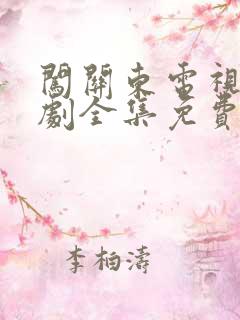 闖關東電視
劇全集免費
李柏濤